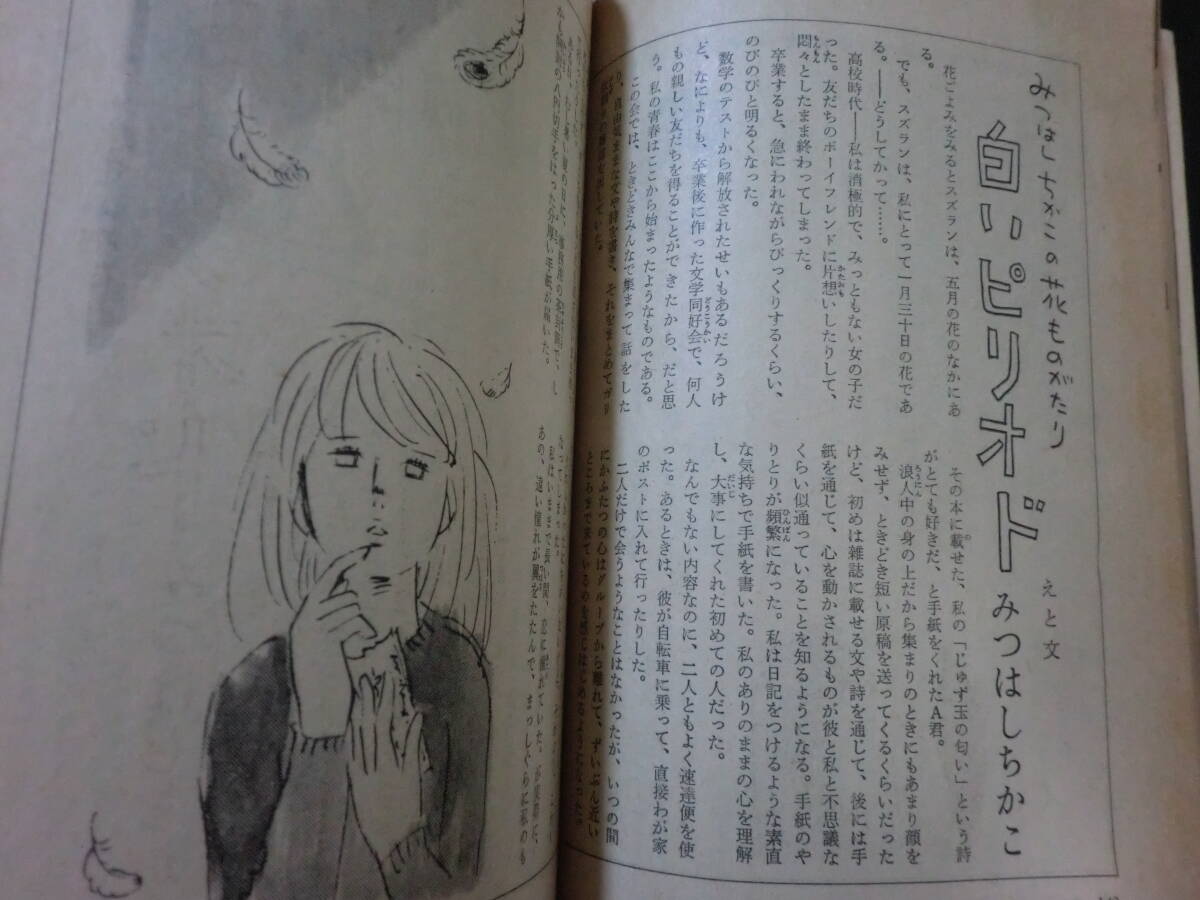 みつはしちかこの花ものがたり
白いピリオド
えと文
みつはしちかこ
花ごよみをみるとスズランは、五月の花のなかにあ
る。
でも、スズランは、私にとって一月三十日の花であ
る。――どうしてかって……。
高校時代――私は消極的で、みっともない女の子だ
った。友だちのボーイフレンドに片想いしたりして、
悶々としたまま終わってしまった。
卒業すると、急にわれながらびっくりするくらい、
のびのびと明るくなった。
数学のテストから解放されたせいもあるだろうけ
ど、なによりも、卒業後に作った文学同好会で、何人
もの親しい友だちを得ることができたから、だと思
う。私の青春はここから始まったようなものである。
この会では、ときどきみんなで集まって話をした
り、自由気ままな文や詩を書き、それをまとめてガリ
その本に載せた、私の「じゅず玉の匂い」という詩
がとても好きだ、と手紙をくれたA君。
浪人中の身の上だから集まりのときにもあまり顔を
みせず、ときどき短い原稿を送ってくるくらいだった
けど、初めは雑誌に載せる文や詩を通じて、後には手
紙を通じて、心を動かされるものが彼と私と不思議な
くらい似通っていることを知るようになる。手紙のや
りとりが頻繁になった。私は日記をつけるような素直
な気持ちで手紙を書いた。私のありのままの心を理解
し、大事にしてくれた初めての人だった。
なんでもない内容なのに、二人ともよく速達便を使
った。あるときは、彼が自転車に乗って、直接わが家
のポストに入れて行ったりした。
二人だけで会うようなことはなかったが、いつの間
にかふたつの心はグループから離れて、ずいぶん近い
ところまできているのを感じはじめるようになった。
分厚い手紙が届いた。
なってしまった。
私はいままで長い間、恋に憧れていた。
あの、遠い憧れが翼をたたんで、まっしぐらに私のも